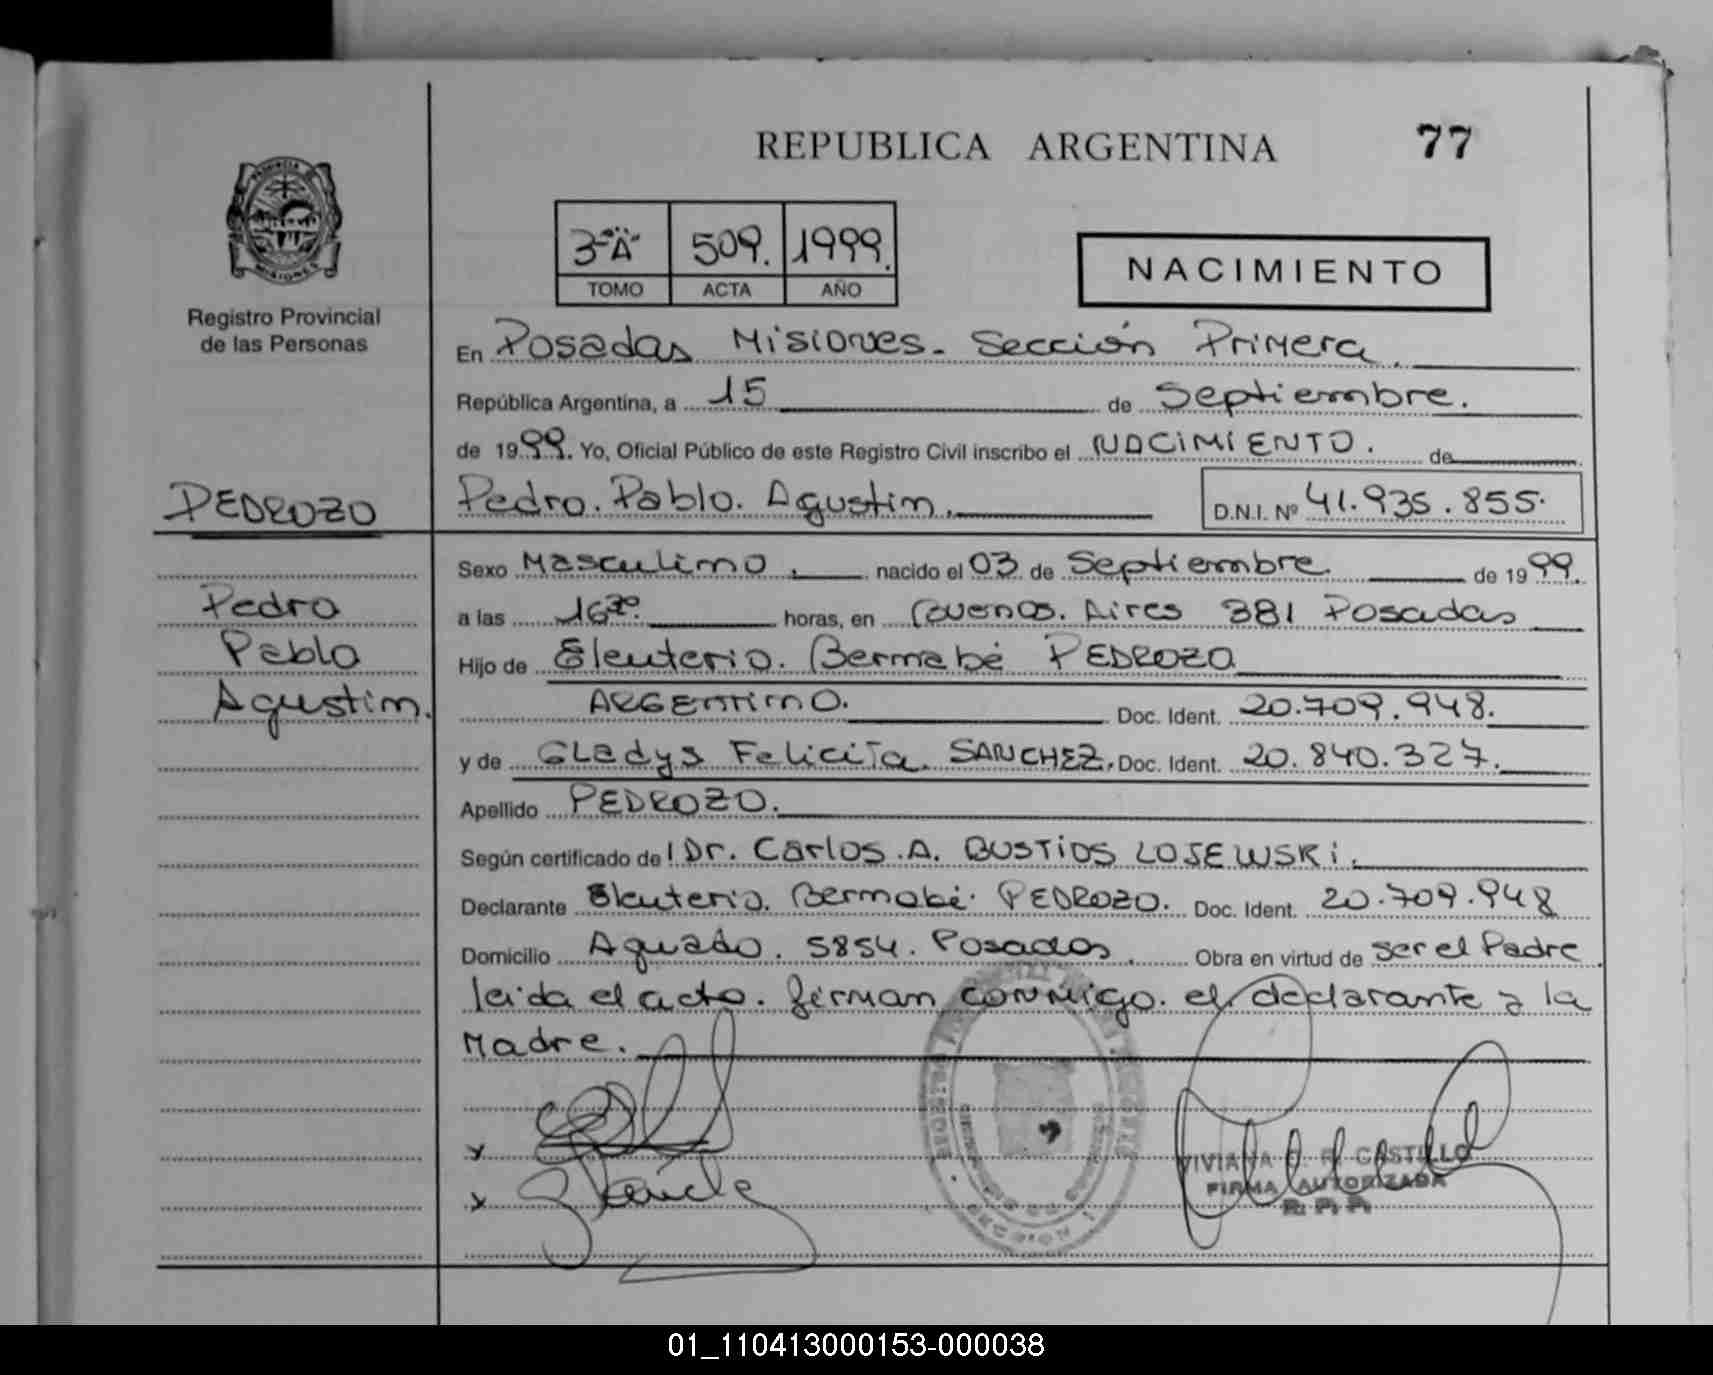 REPUBLICA ARGENTINA 77
Registro Provincial
de las Personas
3-"A" 509. 1999.
TOMO ACTA AÑO
NACIMIENTO
En Posadas Misiones. Sección Primera.
República Argentina, a 15 de Septiembre.
de 1999. Yo, Oficial Público de este Registro Civil inscribo el NACIMIENTO. de
PEDROZO
Pedro. Pablo. Agustin. D.N.I. Nº 41.935.855.
Pedro
Pablo
Agustin.
Sexo Masculino. nacido el 03 de Septiembre. de 1999.
a las 16 30. horas, en Buenos. Aires 381 Posadas
Hijo de Eleuterio. Bernabé PEDROZO
ARGENTINO. Doc. Ident. 20.709.948.
y de GLadys Felicita. SANCHEZ. Doc. Ident. 20.840.327.
Apellido PEDROZO.
Según certificado de l Dr. Carlos. A. BUSTIOS LOJEWSKi.
Declarante Eleuterio. Bernabé. PEDROZO. Doc. Ident. 20.709.948
Domicilio Aguado. 5854. Posadas. Obra en virtud de ser el Padre.
leida el acto. firman conmigo. el declarante y la
Madre.
x
x
VIVIANA E. R. CASTILLO
FIRMA AUTORIZADA
R. P. P.
01_110413000153-000038